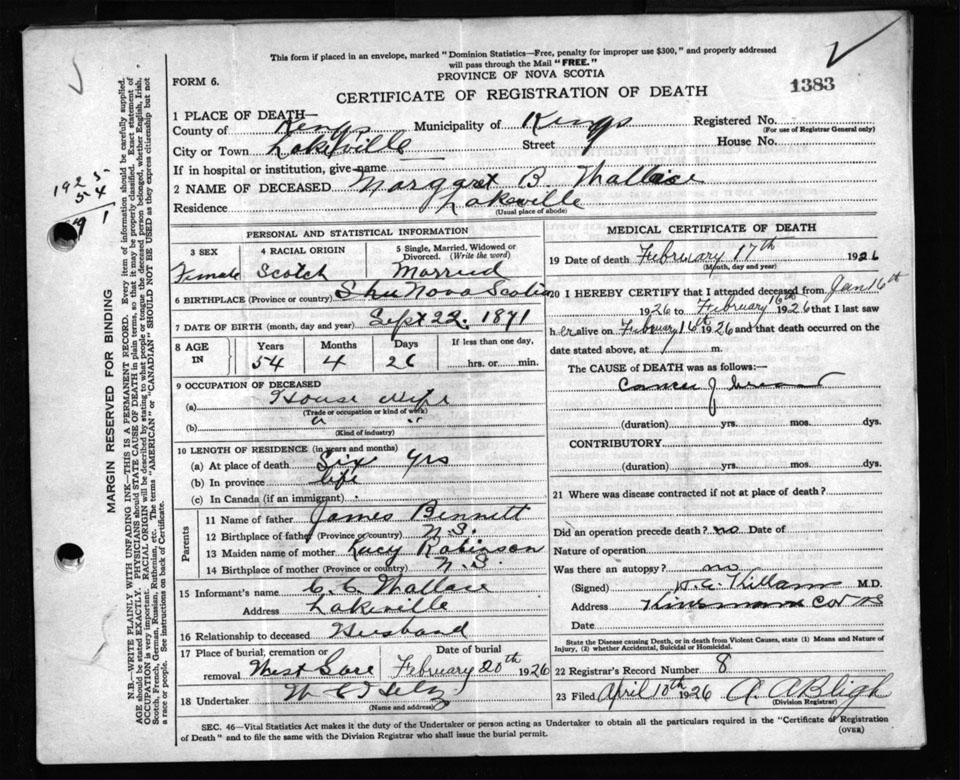 This form if placed in an envelope, marked "Dominion Statistics—Free, penalty for improper use $300," and properly addressed
will pass through the Mail "FREE."
FORM 6.
PROVINCE OF NOVA SCOTIA
CERTIFICATE OF REGISTRATION OF DEATH
1383
1 PLACE OF DEATH—
County of Kings Municipality of Kings Registered No.
(For use of Registrar General only)
City or Town Lakeville Street House No.
If in hospital or institution, give name
2 NAME OF DECEASED Margaret B. Wallace
Residence Lakeville
(Usual place of abode)
1925
54
1
MARGIN RESERVED FOR BINDING
N.B.—WRITE PLAINLY WITH UNFADING INK—THIS IS A PERMANENT RECORD. Every item of information should be carefully supplied.
AGE should be stated EXACTLY. PHYSICIANS should STATE CAUSE OF DEATH in plain terms, so that it may be properly classified. Exact statement of
OCCUPATION is very important. RACIAL ORIGIN will be described by stating to what people or tongue the deceased person belonged, whether English, Irish,
Scotch, French, German, Russian, Ruthenian, etc. The terms "AMERICAN" or "CANADIAN" SHOULD NOT BE USED as they express citizenship but not
a race or people. See instructions on back of Certificate.
PERSONAL AND STATISTICAL INFORMATION
3 SEX
4 RACIAL ORIGIN
5 Single, Married, Widowed or
Divorced. (Write the word)
Female Scotch Married
6 BIRTHPLACE (Province or country) Nova Scotia
7 DATE OF BIRTH (month, day and year) Sept 22. 1871
8 AGE
IN
Years Months Days
If less than one day,
54 4 26
hrs. or min.
9 OCCUPATION OF DECEASED
(a) House wife
(Trade or occupation or kind of work)
(b)
(Kind of industry)
10 LENGTH OF RESIDENCE (in years and months)
(a) At place of death Six yrs
(b) In province life
(c) In Canada (if an immigrant)
Parents
11 Name of father James Bennett
12 Birthplace of father (Province or country) N.S.
13 Maiden name of mother Lucy Robinson
14 Birthplace of mother (Province or country) N.S.
15 Informant's name C. C. Wallace
Address Lakeville
16 Relationship to deceased Husband
17 Place of burial, cremation or
removal West Gore
Date of burial
February 20th 1926
18 Undertaker
(Name and address)
MEDICAL CERTIFICATE OF DEATH
19 Date of death February 17th 1926
(Month, day and year)
20 I HEREBY CERTIFY that I attended deceased from Jan 16th
1926 to February 16th 1926 that I last saw
her alive on February 16th 1926 and that death occurred on
date stated above, at m.
The CAUSE of DEATH was as follows:—
Cancer of breast
(duration) yrs. mos. dys.
CONTRIBUTORY
(duration) yrs. mos. dys.
21 Where was disease contracted if not at place of death?
Did an operation precede death? no Date of
Nature of operation
Was there an autopsy? no
(Signed) Killam M.D.
Address N S
Date
State the Disease causing Death, or in death from Violent Causes, state (1) Means and Nature of
Injury, (2) whether Accidental, Suicidal or Homicidal.
22 Registrar's Record Number 8
23 Filed April 10th 1926 A. A Bligh
(Division Registrar)
SEC. 46—Vital Statistics Act makes it the duty of the Undertaker or person acting as Undertaker to obtain all the particulars required in the "Certificate of Registration
of Death" and to file the same with the Division Registrar who shall issue the burial permit.
(OVER)